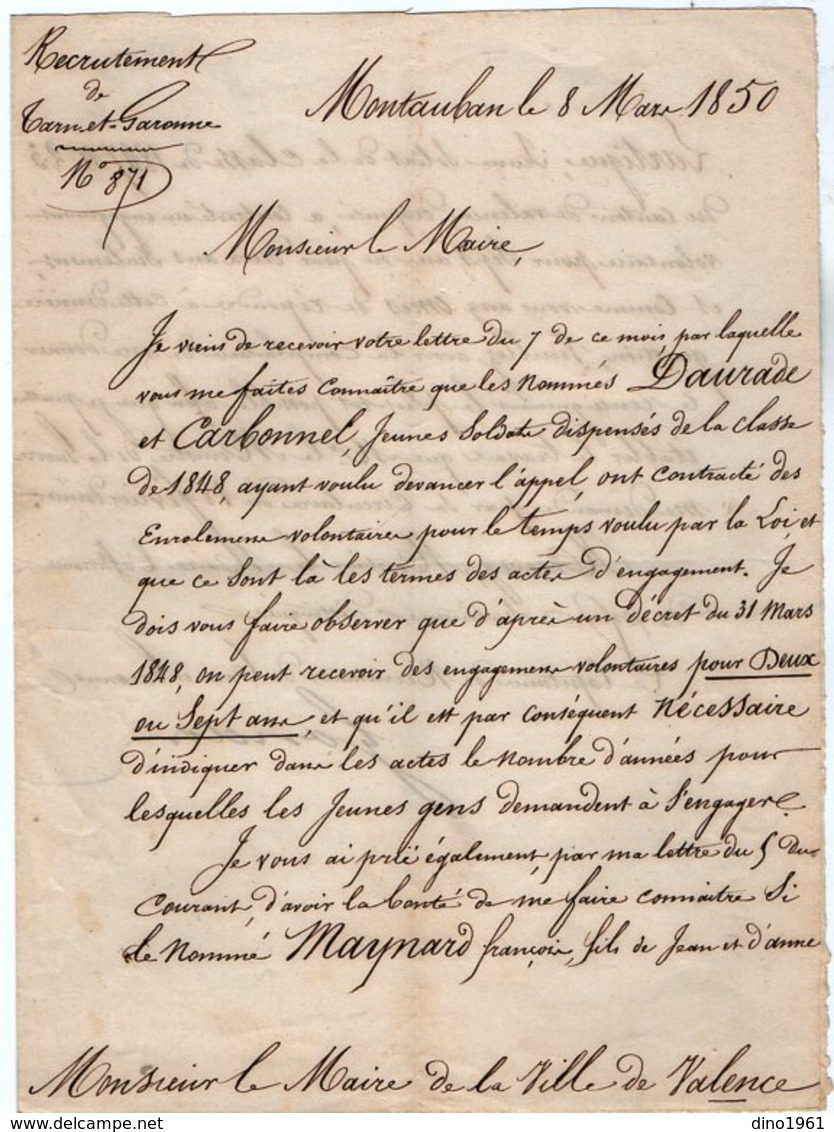 Recrutement
de
Tarn-et-Garonne
N° 871
Montauban le 8 Mars 1850
Monsieur le Maire,
Je viens de recevoir votre lettre du 7 de ce mois, par laquelle
vous me faites connaître que les nommés Daurade
et Carbonnel, Jeunes Soldats dispensés de la classe
de 1848, ayant voulu devancer l'appel, ont contracté des
Enrolemens volontaires pour le temps voulu par la Loi, et
que ce sont là les termes des actes d'engagement. Je
dois vous faire observer que d'après un décret du 31 Mars
1848, on peut recevoir des engagemens volontaires pour Deux
ou Sept ans, et qu'il est par conséquent nécessaire
d'indiquer dans les actes le nombre d'années pour
lesquelles les Jeunes gens demandent à s'engager.
Je vous ai prié également, par ma lettre du 5 du
Courant, d'avoir la bonté de me faire connaitre Si
le nommé Maynard françois, fils de Jean et d'anne
Monsieur le Maire de la Ville de Valence
dino1961